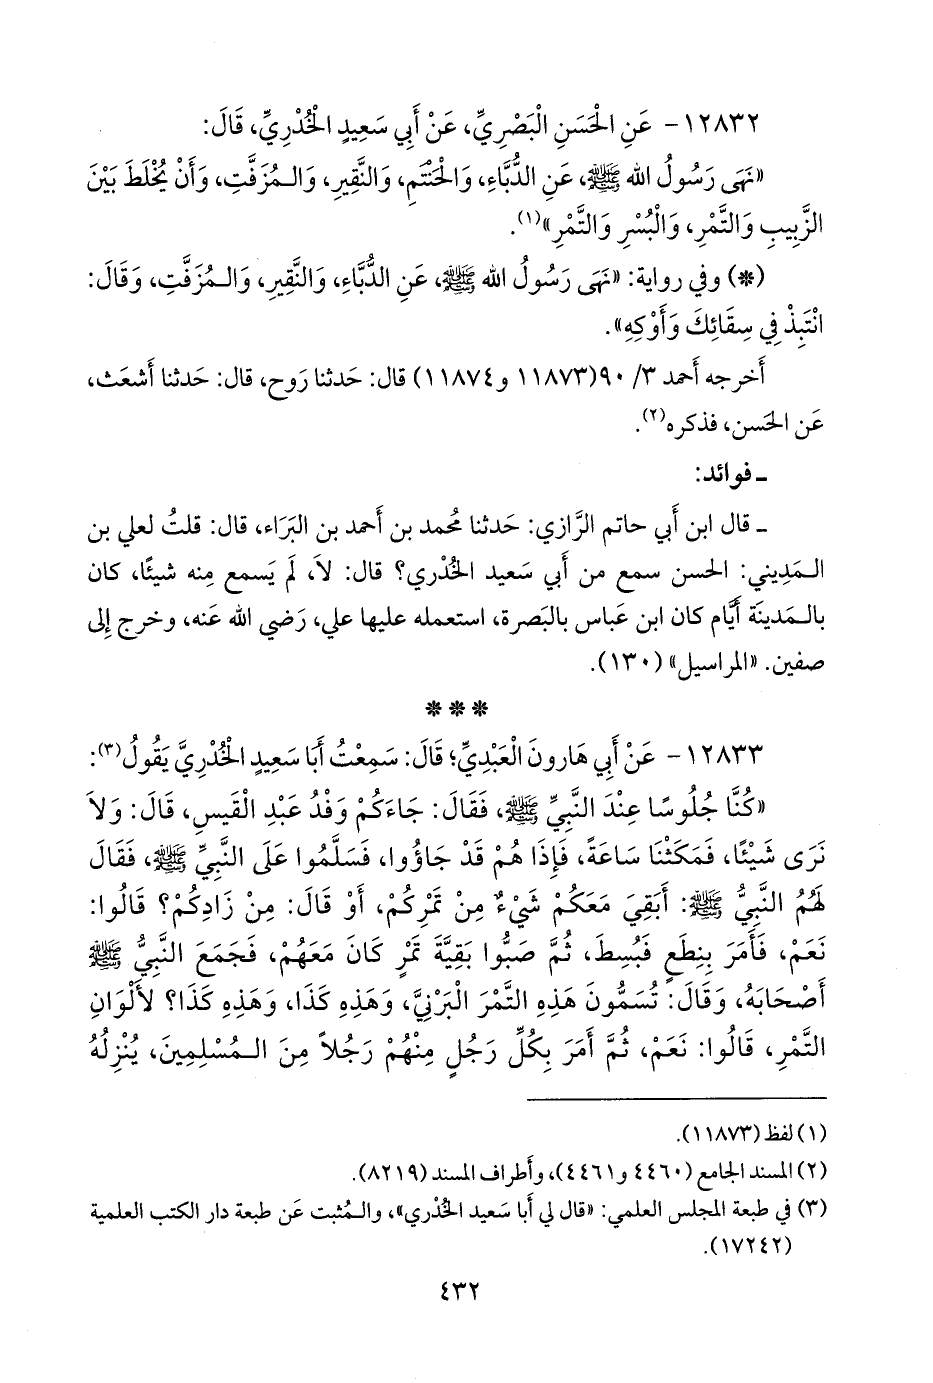 ١٢٨٣٢- عَنِ الْحَسَنِ الْبَصْرِيِّ، عَنْ أَبِي سَعِيدٍ الْخُدْرِيِّ، قَالَ:
«نَهَى رَسُولُ الله ﷺ، عَنِ الدُّبَّاءِ، وَالْحَنْتَمِ، وَالنَّقِيرِ، وَالـمُزَفَّتِ، وَأَنْ يُخْلَطَ بَيْنَ
الزَّبِيبِ وَالتَّمْرِ، وَالْبُسْرِ وَالتَّمْرِ»(١).
(*) وفي رواية: «نَهَى رَسُولُ الله ﷺ، عَنِ الدُّبَّاءِ، وَالنَّقِيرِ، وَالـمُزَفَّتِ، وَقَالَ:
انْتَبِذْ فِي سِقَائِكَ وَأَوْكِهِ».
أَخرجه أَحمد ٣/ ٩٠(١١٨٧٣ و١١٨٧٤) قال: حَدثنا رَوح، قال: حَدثنا أَشعَث،
عَن الحَسن، فذكره(٢).
ـ فوائد:
ـ قال ابن أَبي حاتم الرَّازي: حَدثنا مُحمد بن أَحمد بن البَرَاء، قال: قلتُ لعلي بن
الـمَدِيني: الحسن سمع من أَبي سَعيد الخُدْري؟ قال: لاَ، لَم يَسمع مِنه شيئًا، كان
بالـمَدينَة أَيَّام كان ابن عَباس بالبَصرة، استعمله عليها علي، رَضي الله عَنه، وخرج إِلى
صفين. «المراسيل» (١٣٠).
* * *
١٢٨٣٣- عَنْ أَبِي هَارونَ الْعَبْدِيِّ؛ قَالَ: سَمِعْتُ أَبَا سَعِيدٍ الْخُدْرِيَّ يَقُولُ(٣):
«كُنَّا جُلُوسًا عِنْدَ النَّبِيِّ ﷺ، فَقَالَ: جَاءَكُمْ وَفْدُ عَبْدِ الْقَيسِ، قَالَ: وَلاَ
نَرَى شَيْئًا، فَمَكَثْنَا سَاعَةً، فَإِذَا هُمْ قَدْ جَاؤُوا، فَسَلَّمُوا عَلَى النَّبِيِّ ﷺ، فَقَالَ
لَهُمُ النَّبِيُّ ﷺ: أَبَقِيَ مَعَكُمْ شَيْءٌ مِنْ تَمْرِكُمْ، أَوْ قَالَ: مِنْ زَادِكُمْ؟ قَالُوا:
نَعَمْ، فَأَمَرَ بِنِطَعٍ فَبُسِطَ، ثُمَّ صَبُّوا بَقِيَّةَ تَمْرٍ كَانَ مَعَهُمْ، فَجَمَعَ النَّبِيُّ ﷺ
أَصْحَابَهُ، وَقَالَ: تُسَمُّونَ هَذِهِ التَّمْرَ الْبَرْنِيَّ، وَهَذِهِ كَذَا، وَهَذِهِ كَذَا؟ لأَلْوَانِ
التَّمْرِ، قَالُوا: نَعَمْ، ثُمَّ أَمَرَ بِكُلِّ رَجُلٍ مِنْهُمْ رَجُلاً مِنَ الـمُسْلِمِينَ، يُنْزِلُهُ
(١) لفظ (١١٨٧٣).
(٢) المسند الجامع (٤٤٦٠ و٤٤٦١)، وأَطراف المسند (٨٢١٩).
(٣) في طبعة المجلس العلمي: «قال لي أَبا سَعيد الخُدْري»، والـمُثبت عَن طبعة دار الكتب العلمية
(١٧٢٤٢).
٤٣٢